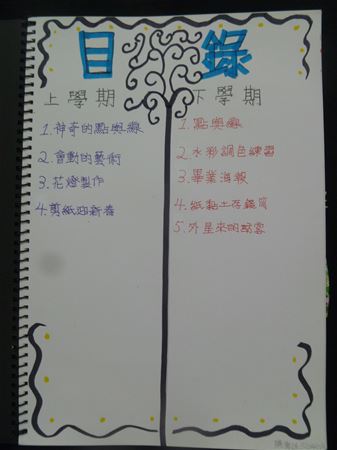 目錄
上學期
1.神奇的點與線
2.會動的藝術
3.花燈製作
4.剪紙迎新春
下學期
1.點與線
2.水彩調色練習
3.畢業海報
4.紙黏土存錢筒
5.外星來的訪客